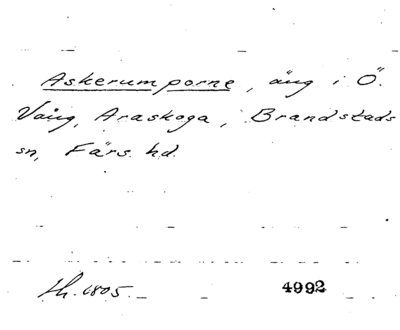 Askerum porne, äng i Ö.
Vång, Araskoga, Brandstads
sn, Färs hd.
4992